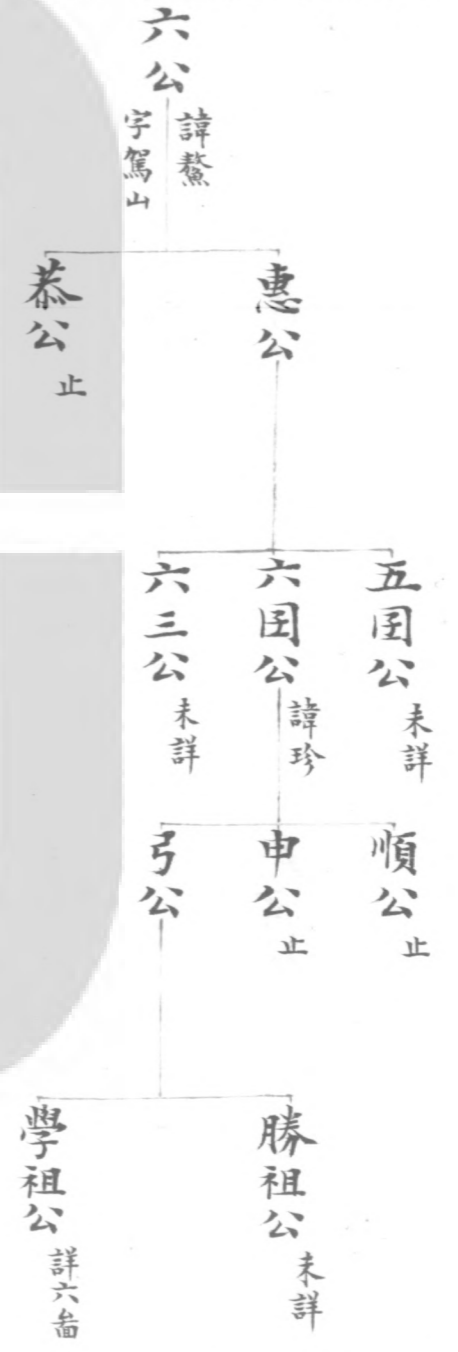 六公
諱鰲
字駕山
惠公
恭公
止
五囯公
未詳
六囯公
諱珍
六三公
未詳
順公
止
申公
止
弓公
勝祖公
未詳
學祖公
詳六啚